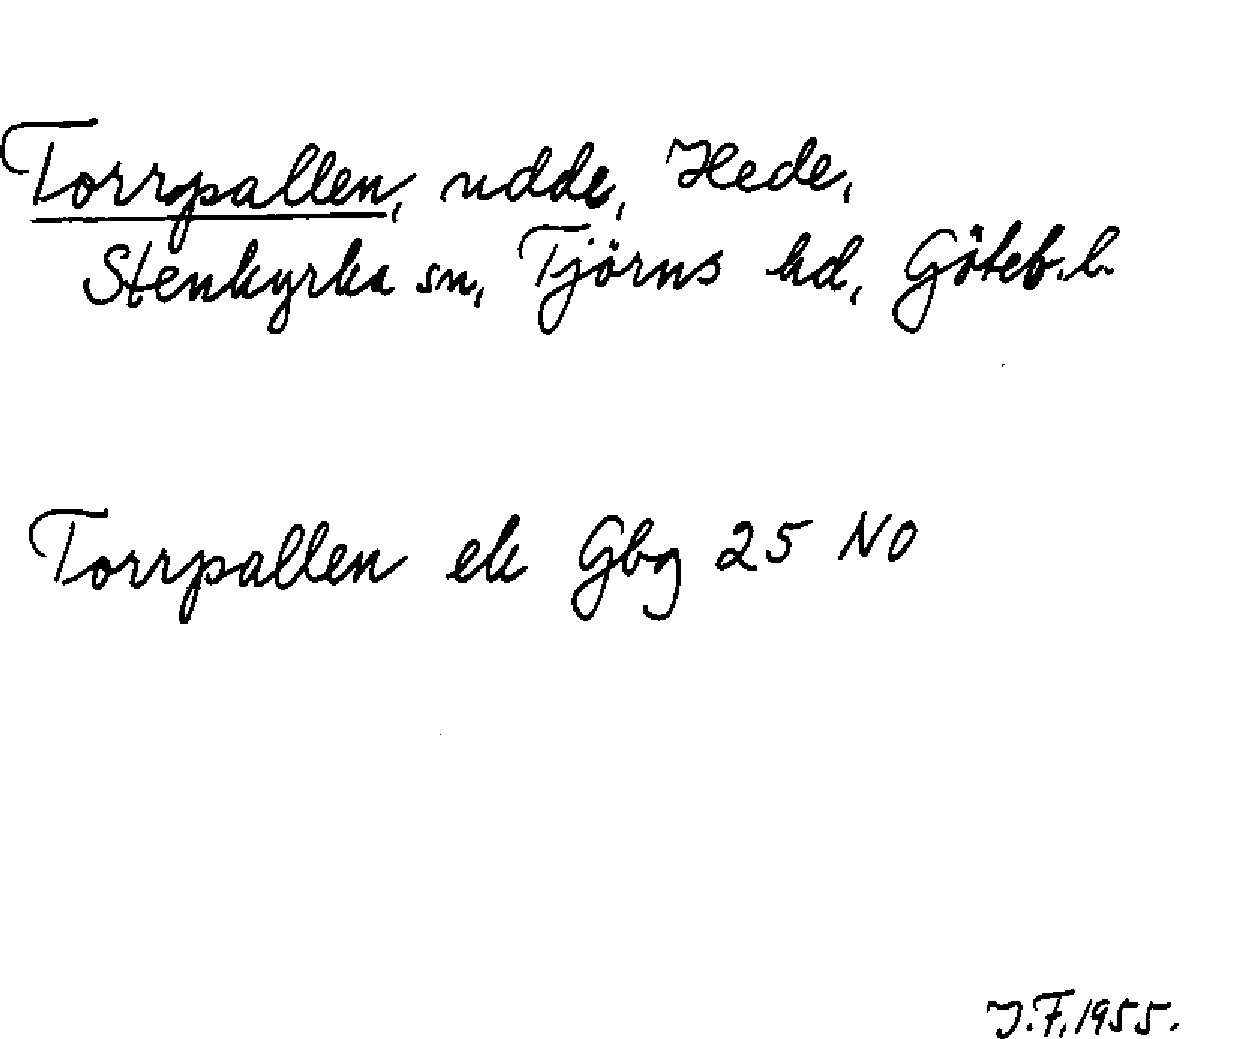 Torrpallen, udde, Hede,
Stenkyrka sn, Tjörns hd, Göteb. l.
Torrpallen ek Gbg 25 NO
J.F. 1955.